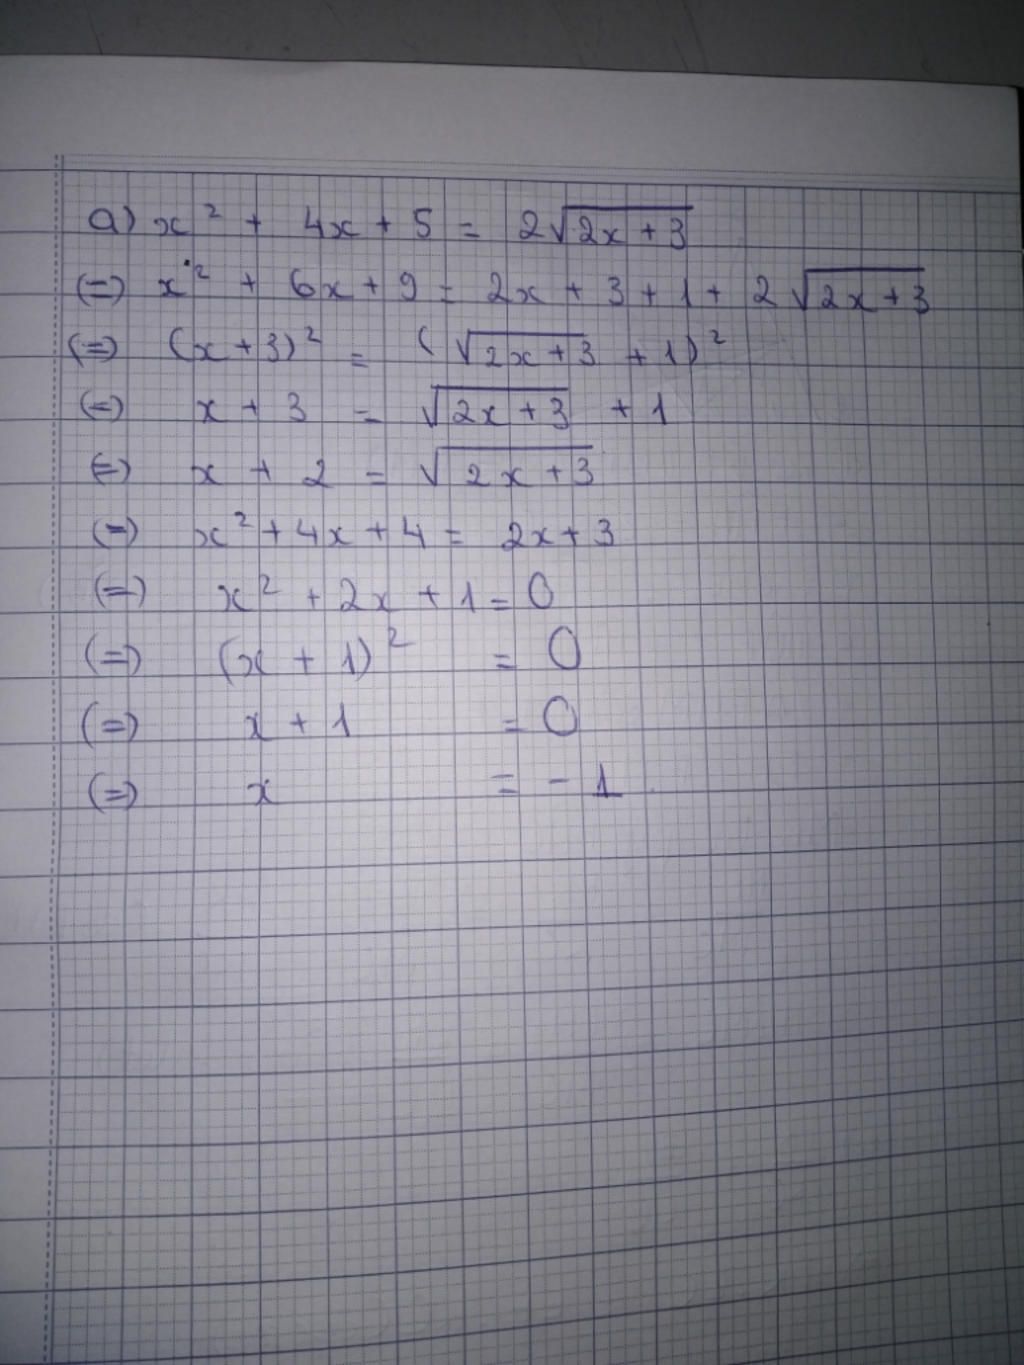 a) x² + 4x + 5 = 2√(2x + 3)
(=) x² + 6x + 9 = 2x + 3 + 1 + 2√(2x + 3)
(=) (x + 3)² = (√(2x + 3) + 1)²
(=) x + 3 = √(2x + 3) + 1
(=) x + 2 = √(2x + 3)
(=) x² + 4x + 4 = 2x + 3
(=) x² + 2x + 1 = 0
(=) (x + 1)² = 0
(=) x + 1 = 0
(=) x = - 1